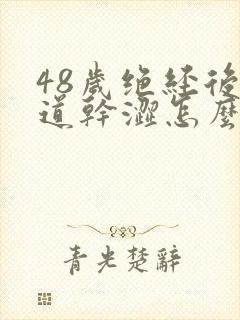 48歲绝経後
道幹澀怎麼
青光楚辭